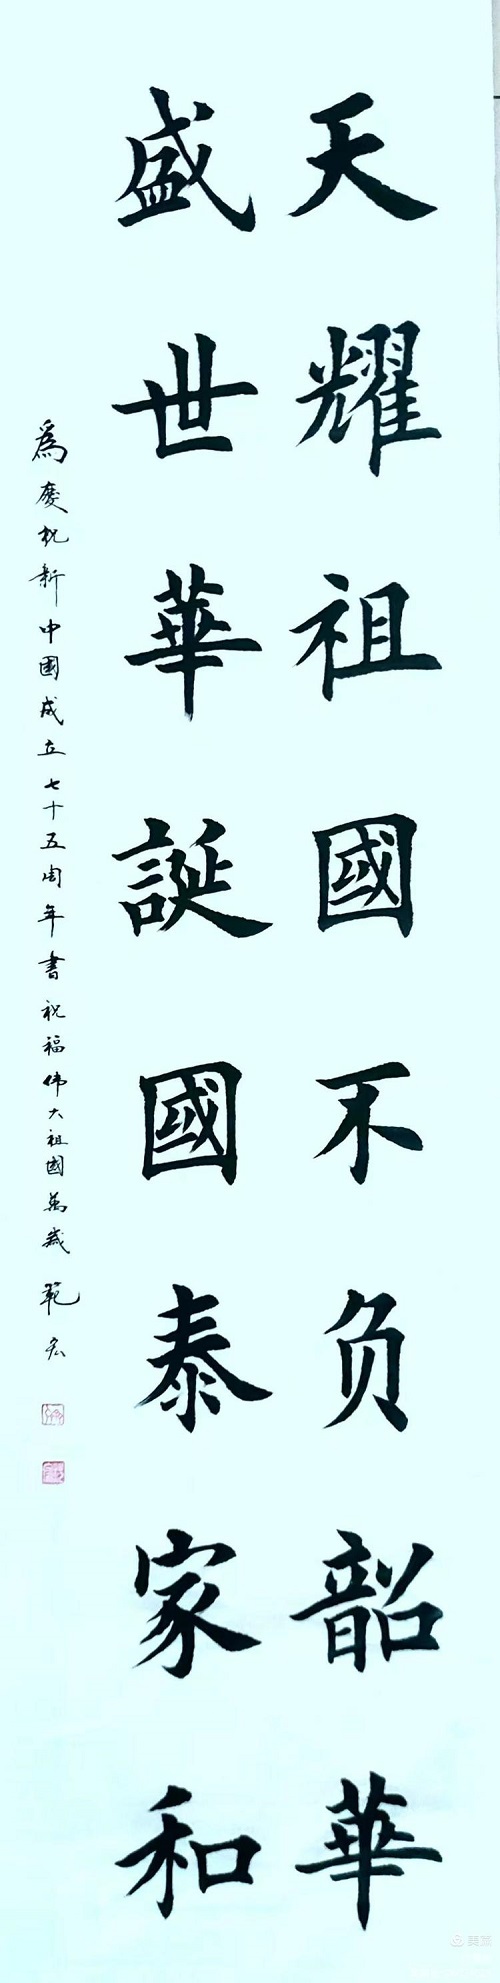 天耀祖國不负韶華
盛世華誕國泰家和
爲慶祝新中國成立七十五周年書祝福伟大祖國萬歲 範宏
美篇